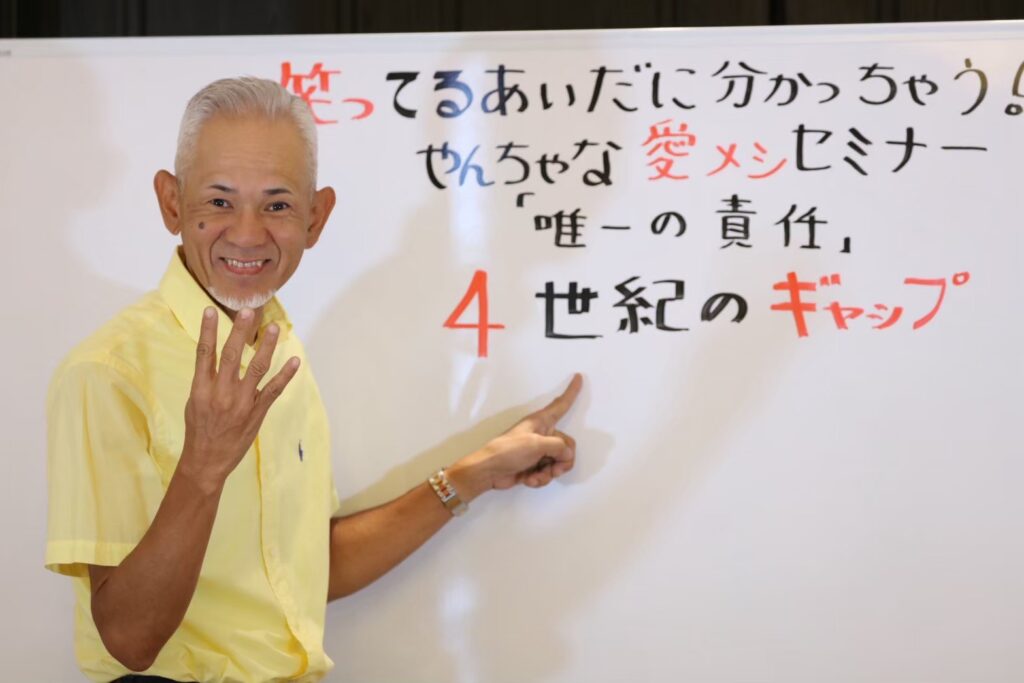 笑ってるあいだに分かっちゃう!
やんちゃな愛メシセミナー
「唯一の責任」
4世紀のギャップ